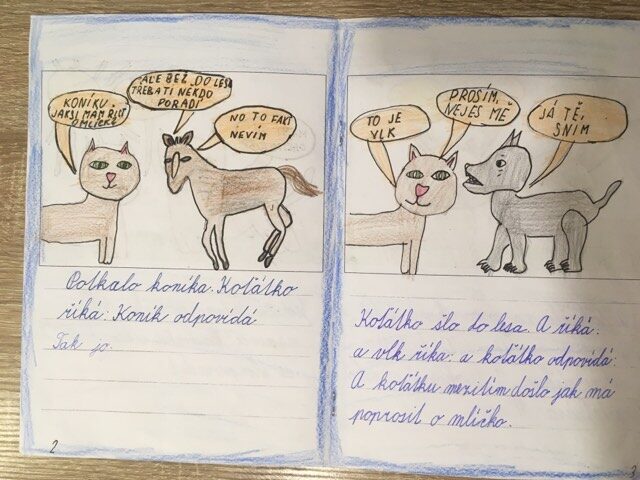 KONÍKU.
JAK SI MÁM ŘÍCT
O MLÍČKO
ALE BĚŽ DO LESA
TŘEBA TI NĚKDO
PORADÍ
NO TO FAKT
NEVÍM
Potkalo koníka. Koťátko
říká: Koník odpovídá
Tak jo.
2
TO JE
VLK
PROSÍM,
NEJES MĚ
JÁ TĚ,
SNIM
Koťátko šlo do lesa. A říká:
a vlk říká: a koťátko odpovídá:
A koťátku mezitím došlo jak má
poprosit o mlíčko.
3